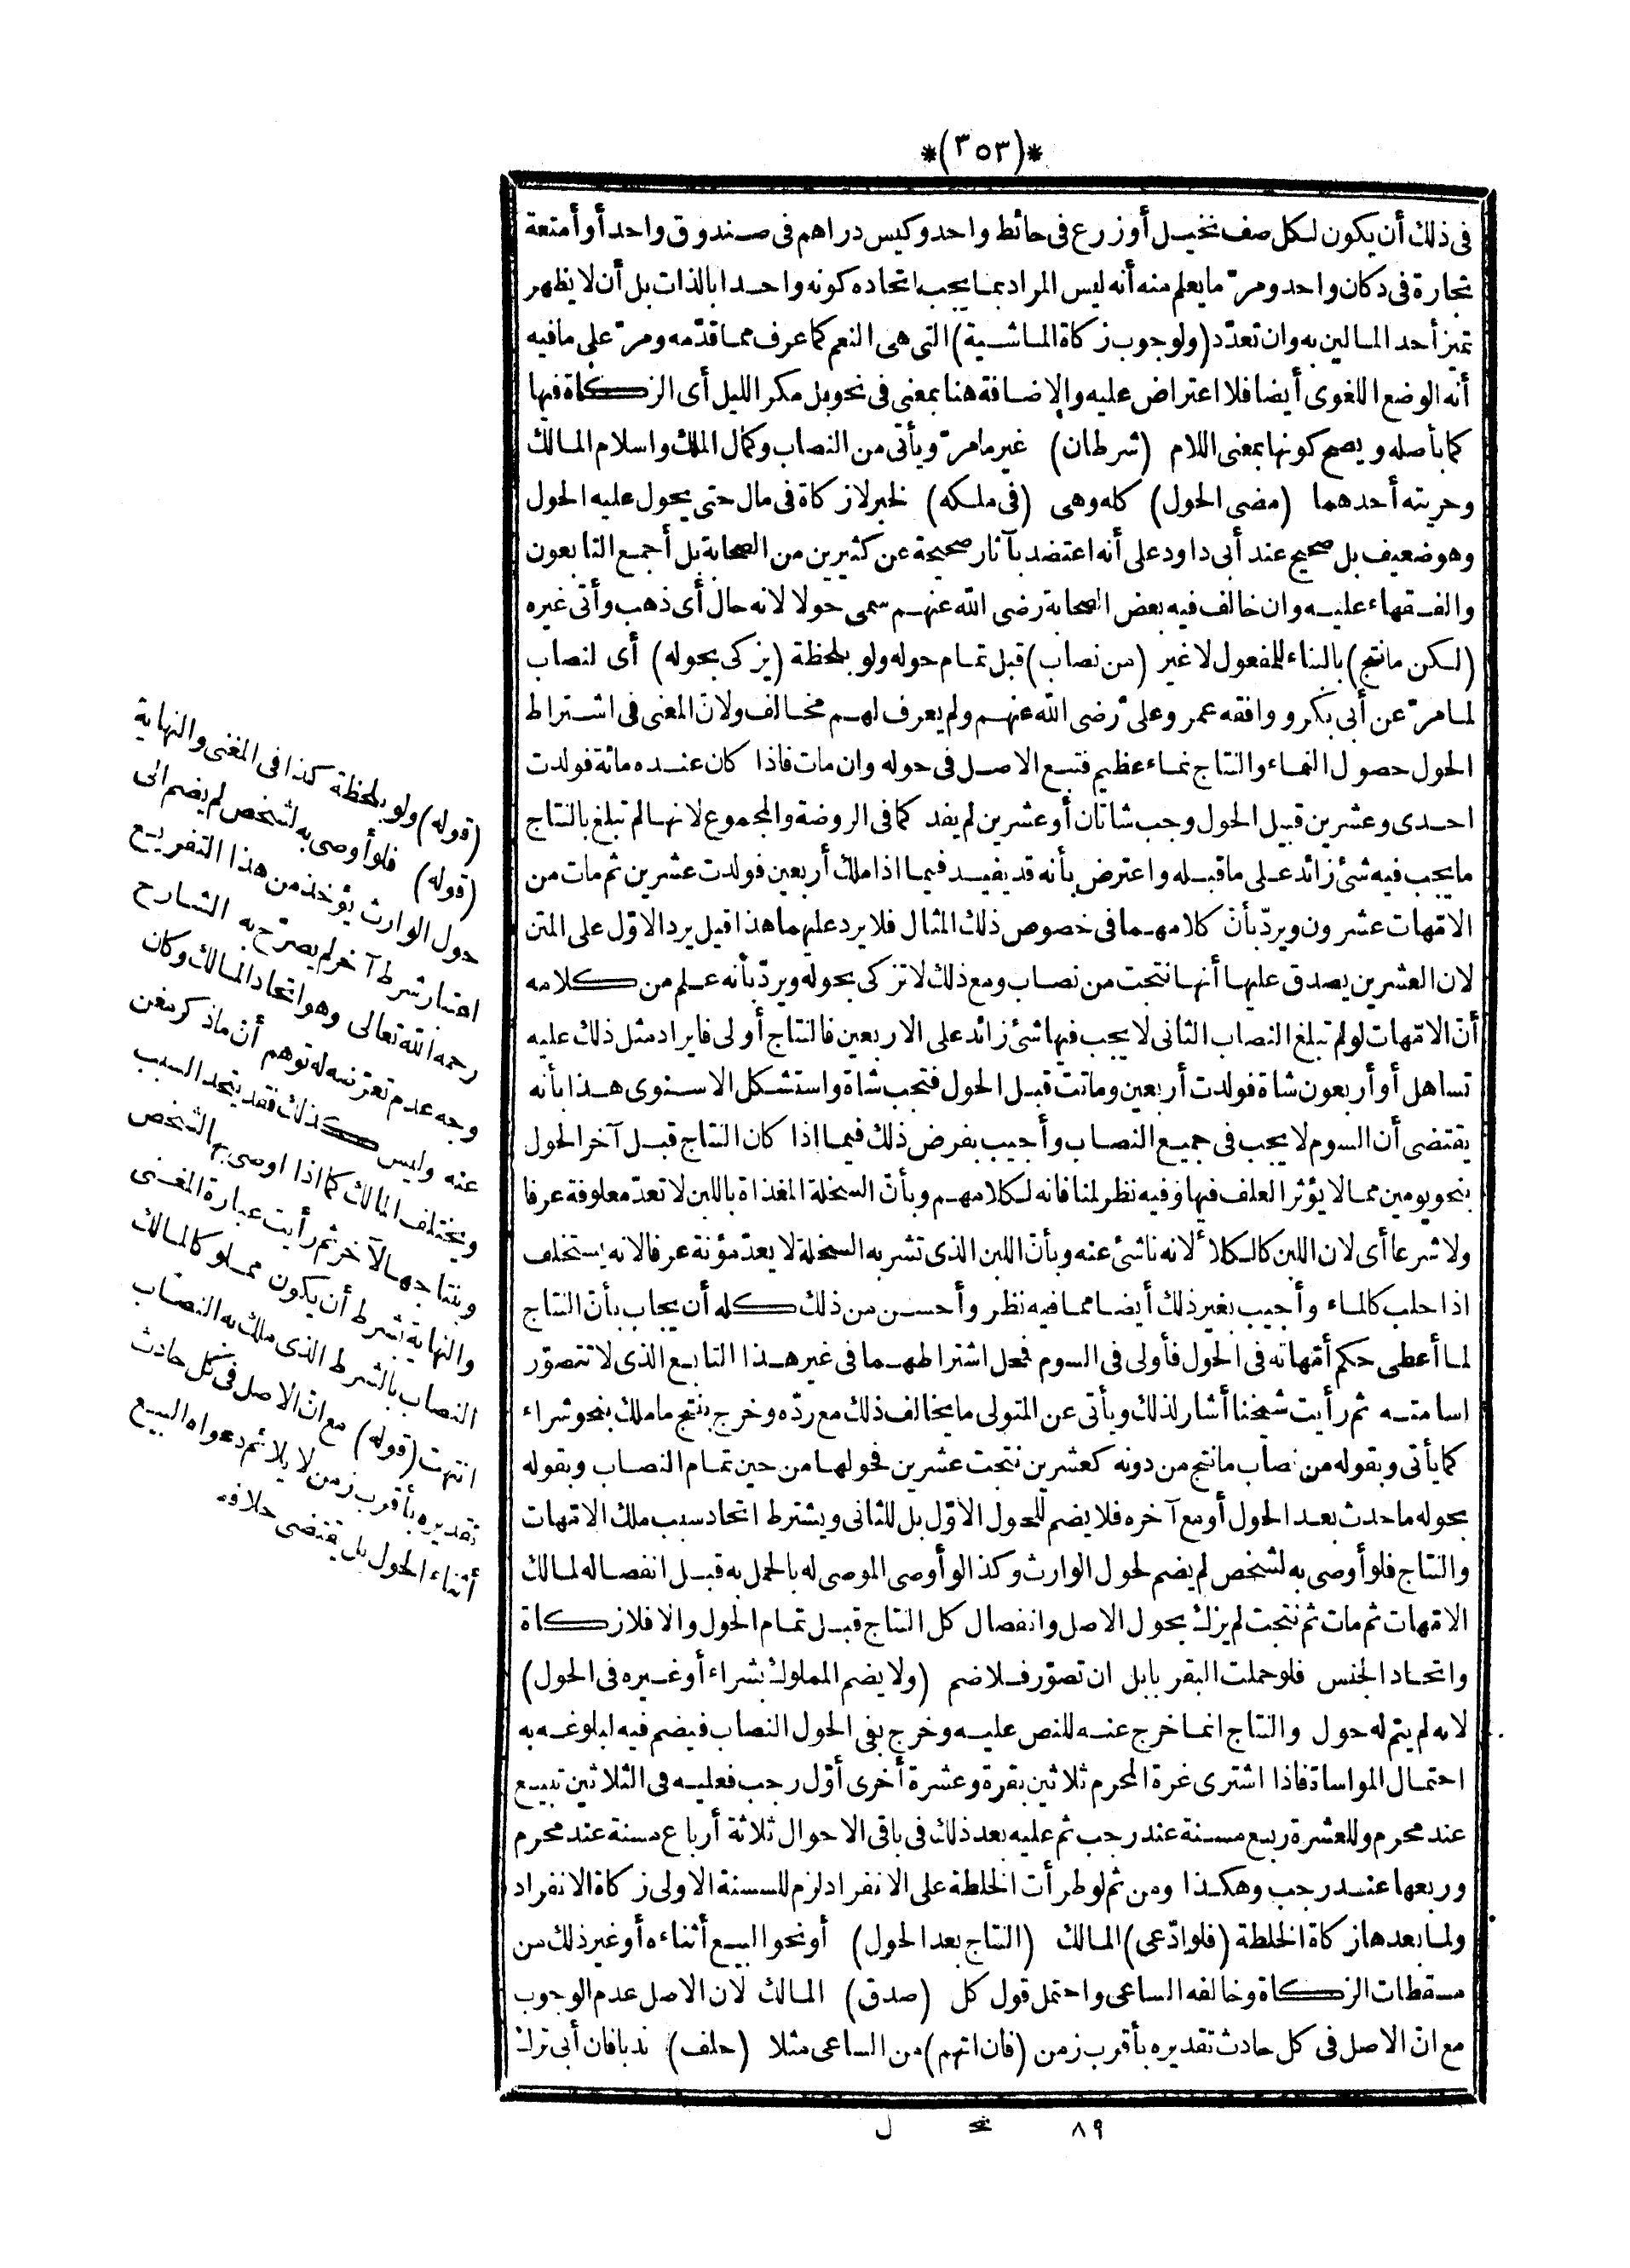 *(٣٥٣)*
فى ذلك أن يكون لكل صف نخيل أو زرع فى حائط واحد وكيس دراهم فى صندوق واحد أو أمتعة
تجارة فى دكان واحد ومرّ ما يعلم منه أنه ليس المراد بما يجب اتحاده كونه واحدا بالذات بل أن لا يظهر
تميز أحد المالين به وان تعدّد (ولوجوب زكاة الماشية) التى هى النعم كما عرف مما قدّمه ومرّ على ما فيه
أنه الوضع اللغوى أيضا فلا اعتراض عليه والاضافة هنا بمعنى فى نحو بل مكر الليل أى الزكاة فيها
كما بأصله ويصح كونها بمعنى اللام (شرطان) غير ما مرّ ويأتى من النصاب وكمال الملك واسلام المالك
وحريته أحدهما (مضى الحول) كله وهى (فى ملكه) لخبر لا زكاة فى مال حتى يحول عليه الحول
وهو ضعيف بل صحيح عند أبى داود على أنه اعتضد بآثار صحيحة عن كثيرين من الصحابة بل أجمع التابعون
والفقهاء عليه وان خالف فيه بعض الصحابة رضى الله عنهم سمى حولا لانه حال أى ذهب وأتى غيره
(لكن ما نتج) بالبناء للمفعول لا غير (من نصاب) قبل تمام حوله ولو بلحظة (يزكى بحوله) أى لنصاب
لما مرّ عن أبى بكر ووافقه عمر وعلىّ رضى الله عنهم ولم يعرف لهم مخالف ولانّ المعنى فى اشتراط
الحول حصول النماء والنتاج نماء عظيم فتبع الاصل فى حوله وان مات فاذا كان عنده مائة فولدت
احدى وعشرين قبيل الحول وجب شاتان أو عشرين لم يفد كما فى الروضة والمجموع لانها لم تبلغ بالنتاج
ما يجب فيه شئ زائد على ما قبله واعترض بأنه قد يفيد فيما اذا ملك أربعين فولدت عشرين ثم مات من
الامّهات عشرون ويردّ بأنّ كلامهما فى خصوص ذلك المثال فلا يرد عليهما هذا قيل يرد الاوّل على المتن
لان العشرين يصدق عليها أنها نتجت من نصاب ومع ذلك لا تزكى بحوله ويردّ بأنه علم من كلامه
أنّ الامّهات لو لم تبلغ النصاب الثانى لا يجب فيها شئ زائد على الاربعين فالنتاج أولى فايراد مثل ذلك عليه
تساهل أو أربعون شاة فولدت أربعين وماتت قبل الحول فتجب شاة واستشكل الاسنوى هذا بأنه
يقتضى أن السوم لا يجب فى جميع النصاب وأجيب بفرض ذلك فيما اذا كان النتاج قبل آخر الحول
بنحو يومين مما لا يؤثر العلف فيها وفيه نظر لمنافاته لكلامهم وبأنّ السخلة المغذاة باللبن لا تعدّ معلوفة عرفا
ولا شرعا أى لان اللبن كالكلأ لانه ناشئ عنه وبأنّ اللبن الذى تشربه السخلة لا يعدّ مؤنة عرفا لانه يستخلف
اذا حلب كالماء وأجيب بغير ذلك أيضا مما فيه نظر وأحسن من ذلك كله أن يجاب بأنّ النتاج
لما أعطى حكم أمّهاته فى الحول فأولى فى السوم فمحل اشتراطهما فى غير هذا التابع الذى لا تتصوّر
اسامته ثم رأيت شيخنا أشار لذلك ويأتى عن المتولى ما يخالف ذلك مع ردّه وخرج بنتج ما ملك بنحو شراء
كما يأتى وبقوله من نصاب ما نتج من دونه كعشرين نتجت عشرين فحولها من حين تمام النصاب وبقوله
بحوله ما حدث بعد الحول أو مع آخره فلا يضم للحول الاوّل بل للثانى ويشترط اتحاد سبب ملك الامّهات
والنتاج فلو أوصى به لشخص لم يضم لحول الوارث وكذا لو أوصى الموصى له بالحمل به قبل انفصاله لمالك
الامّهات ثم مات ثم نتجت لم يزك بحول الاصل وانفصال كل النتاج قبل تمام الحول والا فلا زكاة
واتحاد الجنس فلو حملت البقر بابل ان تصوّر فلا ضم (ولا يضم المملوك بشراء أو غيره فى الحول)
لانه لم يتم له حول والنتاج انما خرج عنه للنص عليه وخرج بفى الحول النصاب فيضم فيه لبلوغه به
احتمال المواساة فاذا اشترى غرة المحرم ثلاثين بقرة وعشرة أخرى أوّل رجب فعليه فى الثلاثين تبيع
عند محرم وللعشرة ربع مسنة عند رجب ثم عليه بعد ذلك فى باقى الاحوال ثلاثة أرباع مسنة عند محرم
وربعها عند رجب وهكذا ومن ثم لو طرأت الخلطة على الانفراد لزم للسنة الاولى زكاة الانفراد
ولما بعدها زكاة الخلطة (فلو ادّعى) المالك (النتاج بعد الحول) أو نحو البيع أثناءه أو غير ذلك من
مسقطات الزكاة وخالفه الساعى واحتمل قول كل (صدق) المالك لان الاصل عدم الوجوب
مع انّ الاصل فى كل حادث تقديره بأقرب زمن (فان اتهم) من الساعى مثلا (حلف) ندبا فان أبى ترك
(قوله) ولو بلحظة كذا فى المغنى والنهاية
(قوله) فلو أوصى به لشخص لم يضم الى
حول الوارث يؤخذ من هذا التفريع
اعتبار شرط آخر لم يصرّح به الشارح
رحمه الله تعالى وهو اتحاد المالك وكان
وجه عدم تعرّضه له توهم أن ما ذكر مغن
عنه وليس كذلك فقد يتحد السبب
ويختلف المالك كما اذا اوصى بها لشخص
وبنتاجها لآخر ثم رأيت عبارة المغنى
والنهاية بشرط أن يكون مملوكا لمالك
النصاب بالشرط الذى ملك به النصاب
انتهت (قوله) مع انّ الاصل فى كل حادث
تقديره بأقرب زمن لا يلائم دعواه البيع
أثناء الحول بل يقتضى خلافه
٨٩ ل